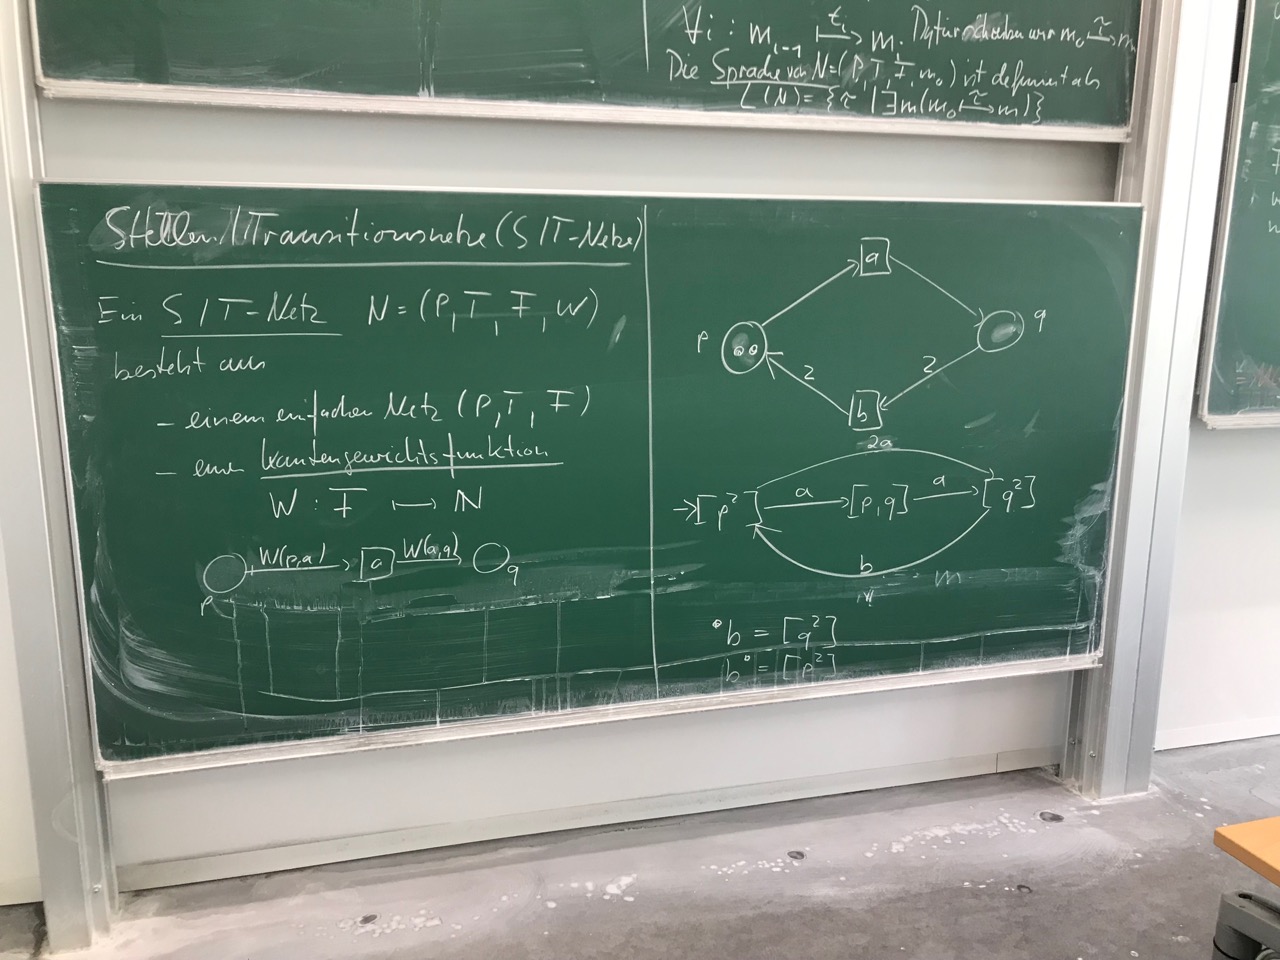 ∀i : m_{i-1} ⟼^{t_i} m_i. Dafür schreiben wir m_0 ⟼^τ m
Die Sprache von N=(P,T,F,m_0) ist definiert als
L(N) = {τ | ∃m(m_0 ⟼^τ m)}
Stellen/Transitionsnetze (S/T-Netze)
Ein S/T-Netz N = (P, T, F, W)
besteht aus
- einem einfachen Netz (P, T, F)
- einer Kantengewichtsfunktion
W : F ⟼ N
W(p,a) a W(a,q)
p q
a
p q
2 2
b
2a
→[p²] a [p,q] a [q²]
b
•b = [q²]
b• = [p²]